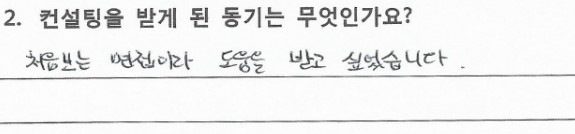 2. 컨설팅을 받게 된 동기는 무엇인가요?
처음보는 면접이라 도움을 받고 싶었습니다.